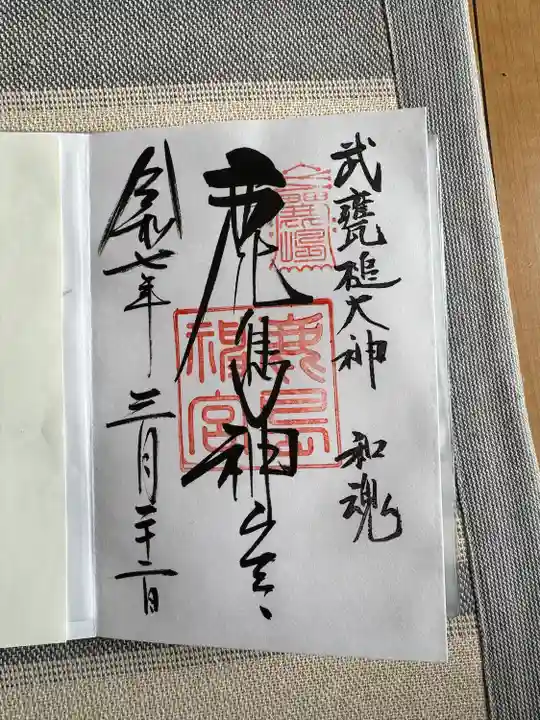 武甕槌大神 和魂
鹿島神宮
鹿島
神宮
令和七年 三月二十二日